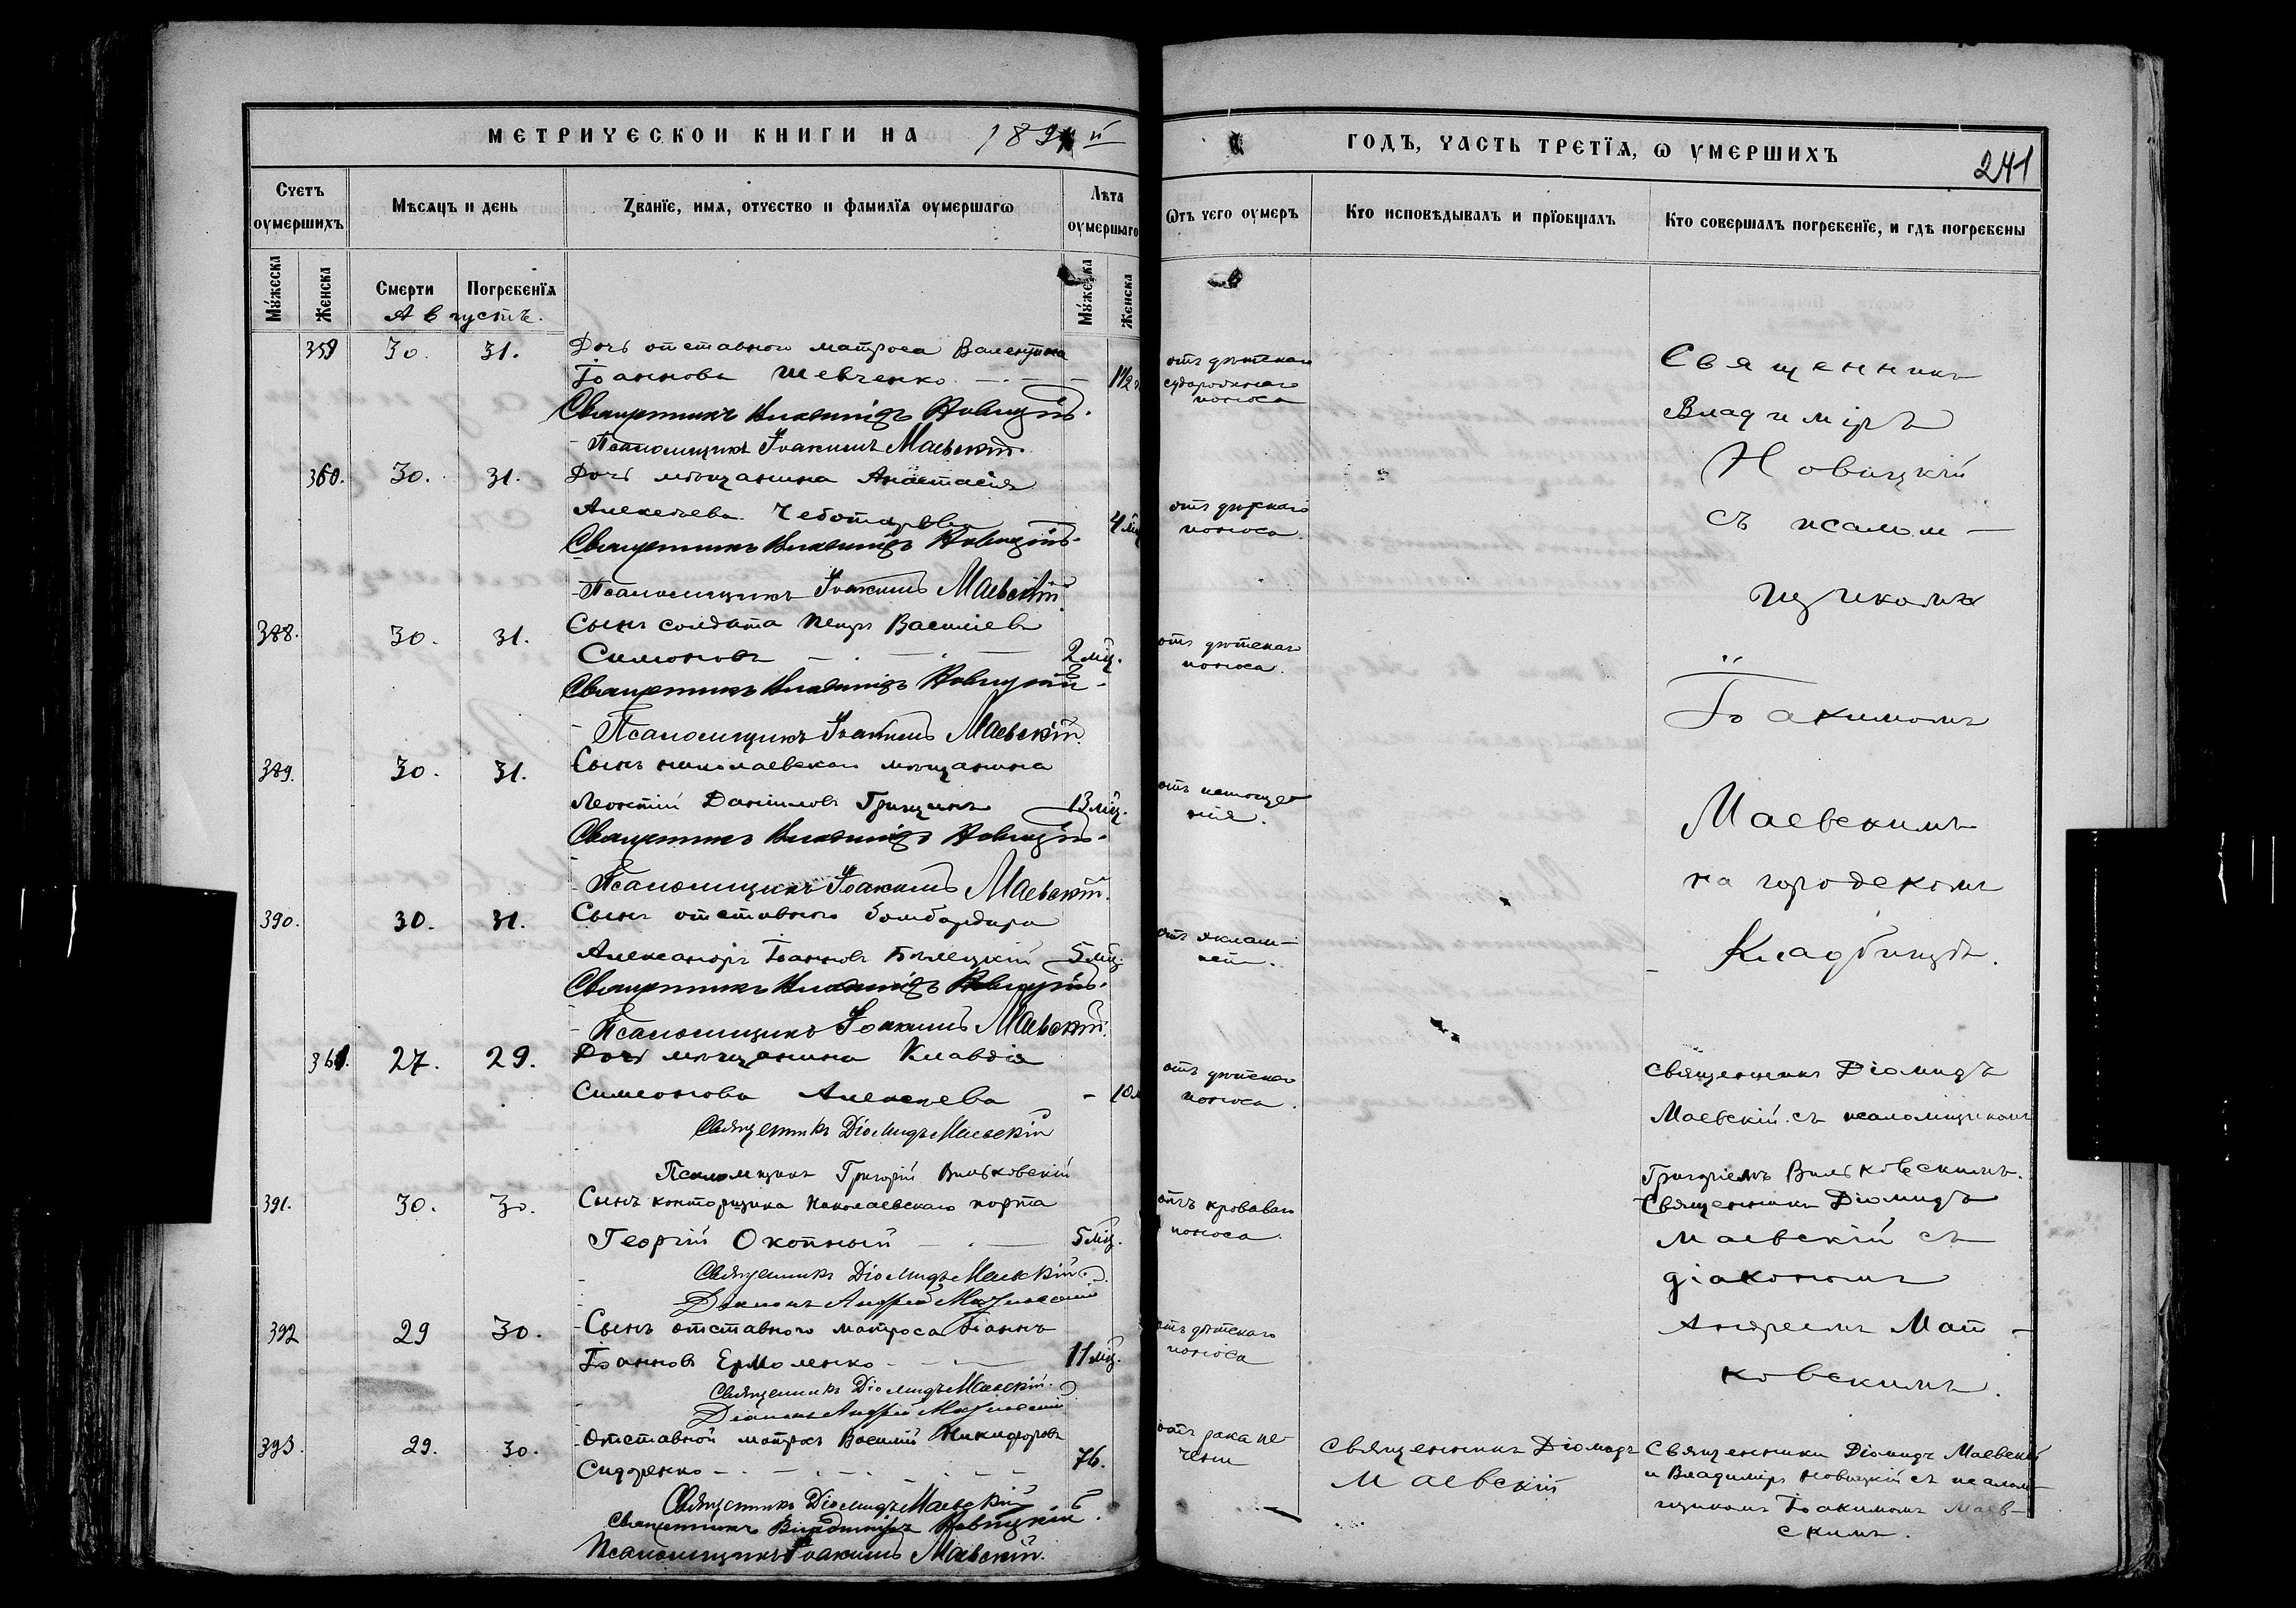 МЕТРИЧЕСКОЙ КНИГИ НА 1894 й ГОДЪ, ЧАСТЬ ТРЕТІѦ, Ѡ УМЕРШИХЪ
241
Счетъ оумершихъ
Мѣсѧцъ и день
Званїе, имѧ, отчество и фамилїѧ оумершагѡ
Лѣта оумершаго
Ѿтъ чего оумеръ
Кто исповѣдывалъ и прїобщалъ
Кто совершалъ погребенїе, и гдѣ погребены
Мужеска
Женска
Смерти
Погребенїѧ
Мужеска
Женска
Августъ.
359 30. 31. Дочь отставного матроса Валентина
Іоаннова Шевченко 1 1/2
отъ дѣтскаго
судорожнаго
поноса
Священникъ Владиміръ Новицкій.
Псаломщикъ Іоакимъ Маевскій.
360. 30. 31. Дочь мѣщанина Анастасія
Алексѣева Чеботарева 4 мц
отъ дѣтскаго
поноса.
Священникъ Владиміръ Новицкій.
Псаломщикъ Іоакимъ Маевскій.
388. 30. 31. Сынъ солдата Петръ Васильевъ
Симоновъ 2 мц.
отъ дѣтскаго
поноса.
Священникъ Владиміръ Новицкій
Псаломщикъ Іоакимъ Маевскій.
389. 30. 31. Сынъ николаевскаго мѣщанина
Леонтій Даніиловъ Грищинъ 13 мц.
отъ истоще
нія.
Священникъ Владиміръ Новицкій.
Псаломщикъ Іоакимъ Маевскій.
390. 30. 31. Сынъ отставного бомбардира
Александръ Іоанновъ Бѣлецкій 5 мц.
отъ эклам-
псіи.
Священникъ Владиміръ Новицкій.
Псаломщикъ Іоакимъ Маевскій.
Священникъ
Владиміръ
Новицкій
съ псалом-
щикомъ
Іоакимомъ
Маевскимъ
на городскомъ
Кладбищѣ.
361. 27. 29. Дочь мѣщанина Клавдія
Симеонова Алексѣева 10 м
отъ дѣтскаго
поноса.
Священникъ Діомидъ Маевскій
Псаломщикъ Григорій Вильковскій
Священникъ Діомидъ
Маевскій съ псаломщикомъ
Григоріемъ Вильковскимъ.
391. 30. 30. Сынъ конторщика Николаевскаго порта
Георгій Окопный 5 мц.
отъ кроваваго
поноса.
Священникъ Діомидъ Маевскій.
Діаконъ Андрей Матковскій
392 29 30. Сынъ отставного матроса Іоаннъ
Іоанновъ Ермоленко 11 мц.
отъ дѣтскаго
поноса
Священникъ Діомидъ Маевскій.
Діаконъ Андрей Матковскій
Священникъ Діомидъ
Маевскій съ
діакономъ
Андреемъ Мат-
ковскимъ.
393. 29. 30. Отставной матросъ Василій Никифоровъ
Сидоренко 76.
отъ рака пе-
чени
Священникъ Діомидъ
Маевскій
Священники Діомидъ Маевскій
и Владиміръ Новицкій съ псалом-
щикомъ Іоакимомъ Маев-
скимъ.
Священникъ Діомидъ Маевскій
Священникъ Владиміръ Новицкій.
Псаломщикъ Іоакимъ Маевскій.